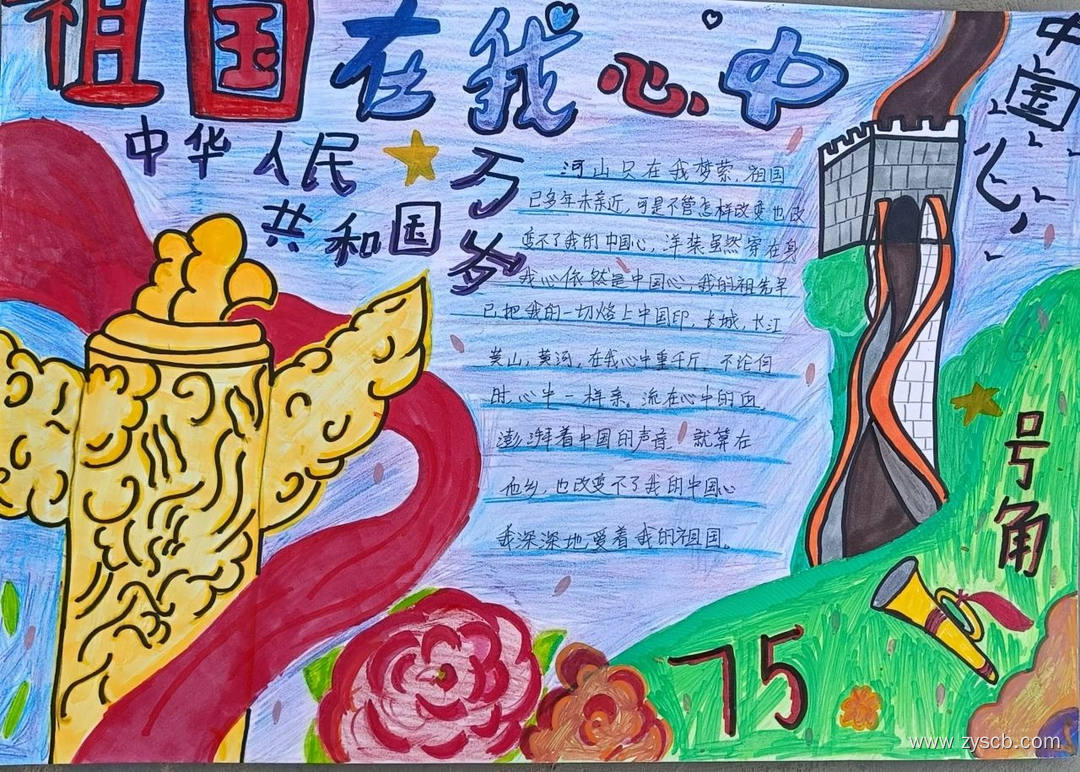 祖国在我心中
中国心
中华人民
共和国
万岁
河山只在我梦萦,祖国
已多年未亲近,可是不管怎样改变也改
变不了我的中国心,洋装虽然穿在身
我心依然是中国心,我的祖先早
已把我的一切烙上中国印,长城,长江
黄山,黄河,在我心中重千斤,不论何
时,心中一样亲。流在心中的血,
澎湃着中国的声音,就算在
他乡,也改变不了我的中国心
我深深地爱着我的祖国。
号角
75
www.zyscb.com